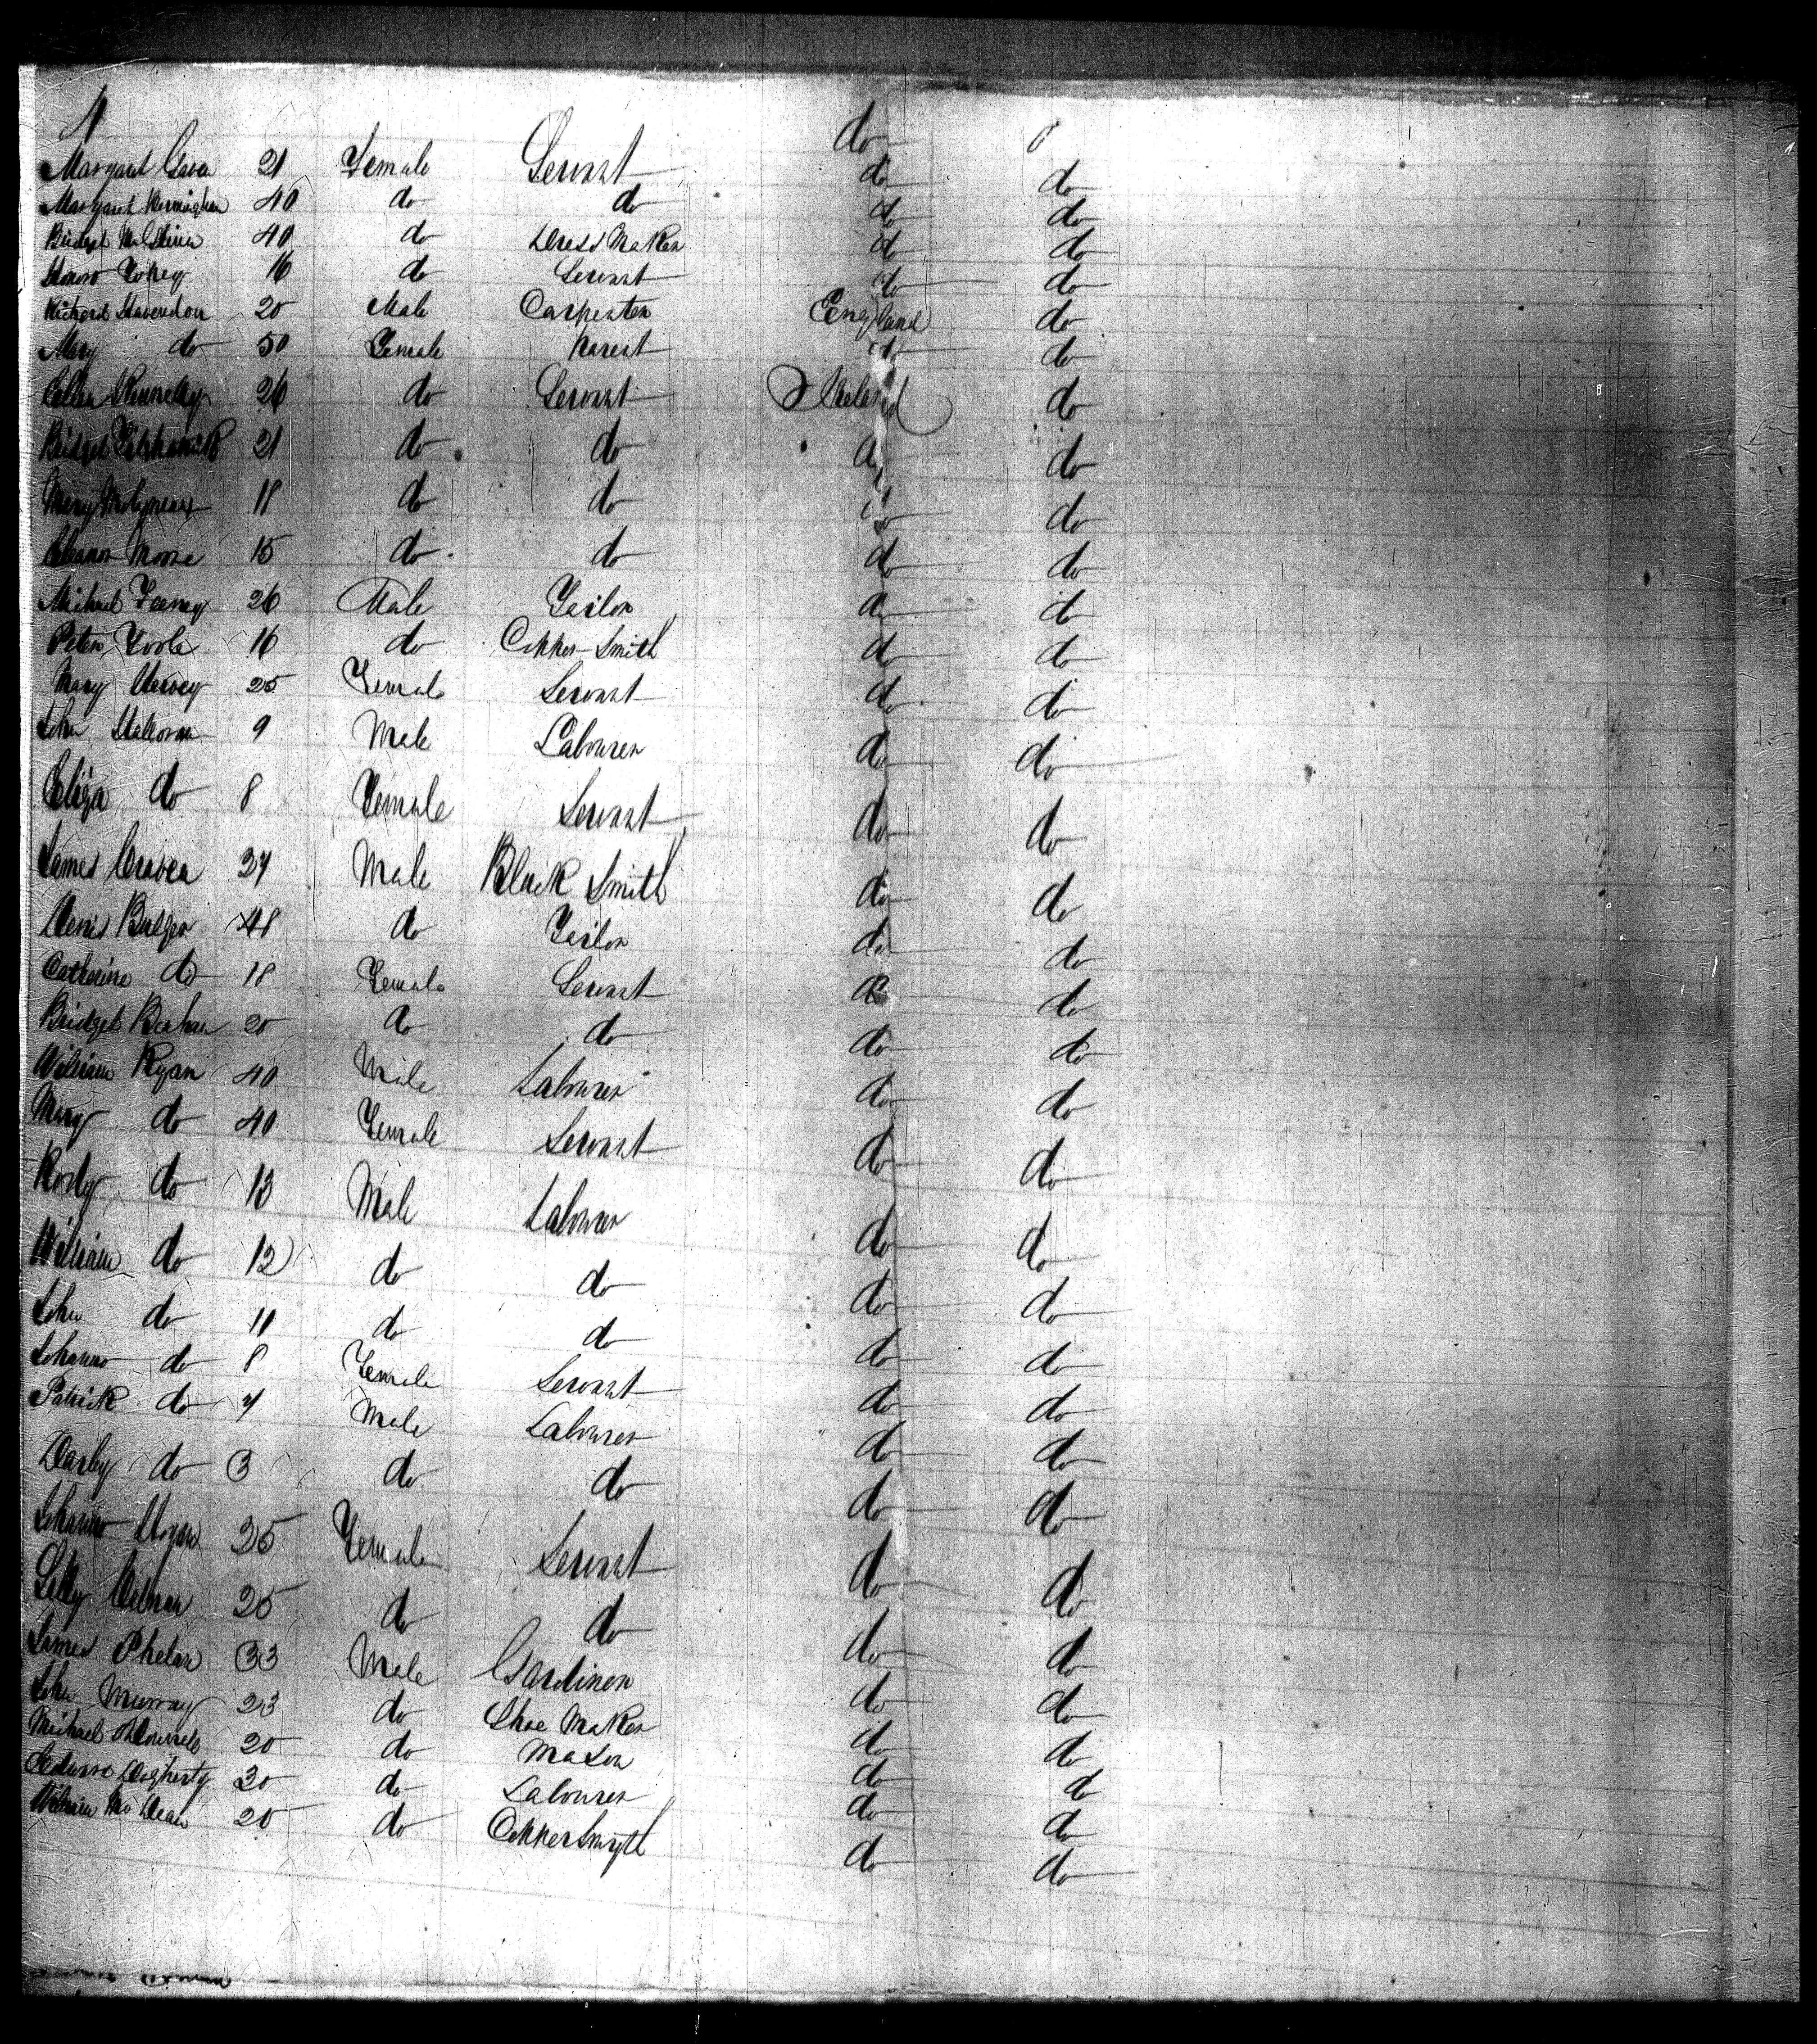 do
Margaret 21 Female Servant do do
Margaret Bermingham 40 do do do do
Bridget 40 do Dress Maker do do
16 do Servant do do
Richard 20 Male Carpenter England do
Mary do 50 Female do do
Ellen Kennelly 26 do Servant Ireland do
Bridget 21 do do do do
Mary Molyneaux 18 do do do do
Eleanor Moore 15 do do do do
Michael Feeney 26 Male Tailor do do
Peter Toole 16 do Copper Smith do do
Mary 25 Female Servant do do
John 9 Male Labourer do do
Eliza do 8 Female Servant do do
James Craven 27 Male Black Smith do do
Denis Bulger 48 do Tailor do do
Catherine do 18 Female Servant do do
Bridget 20 do do do do
William Ryan 40 Male Labourer do do
Mary do 40 Female Servant do do
do 13 Male Labourer do do
William do 12 do do do do
John do 11 do do do do
Johanna do 8 Female Servant do do
Patrick do Male Labourer do do
Darby do 3 do do do do
Johanna Hogan 25 Female Servant do do
25 do do do do
James Phelan 33 Male Gardiner do do
John Murray 23 do Shoe Maker do do
Michael 20 do Mason do do
Dogherty 30 do Labourer do do
William 20 do Coppersmyth do do